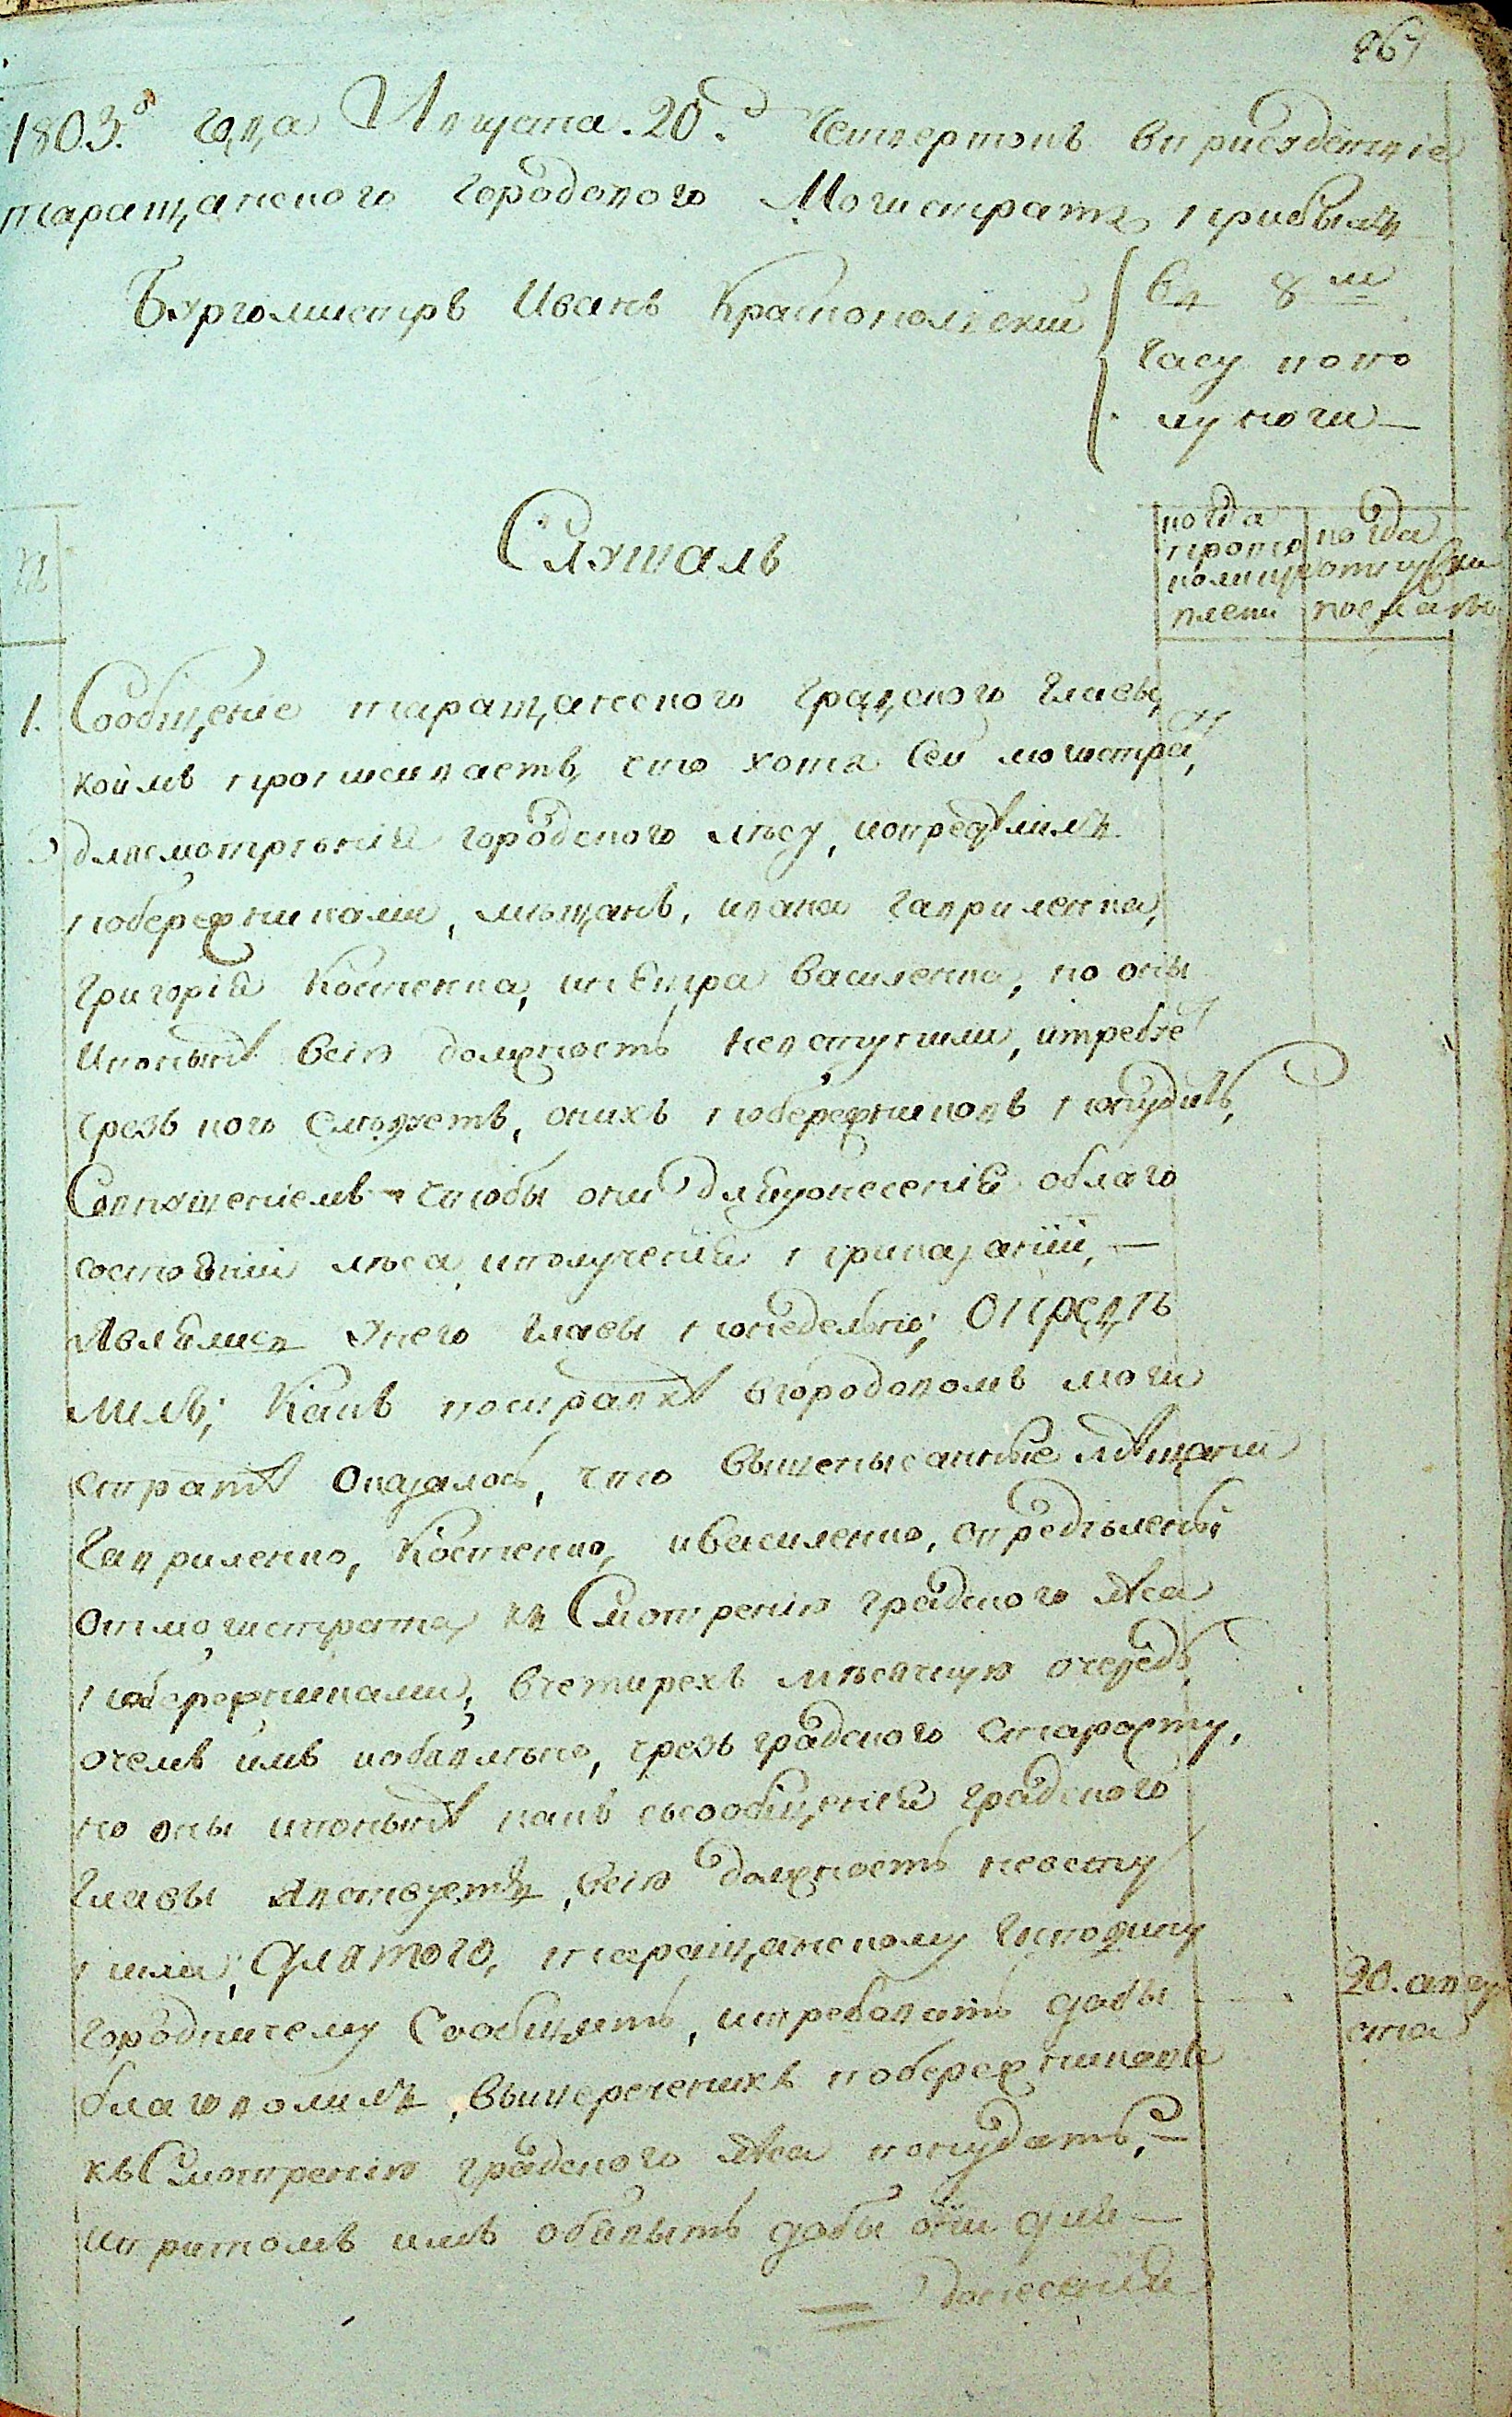 1803.го года Августа. 20.д Четвертокъ вприсудствіе
таращанского городового Могистрата прибылъ
Бургомистръ Иванъ Краснопольскій
въ 8 м
часу попо
лу ночи
№
Слушалъ
когда
прото
колъ
когда
отпуски
1. Сообщеніе таращанского градского главы,
коимъ прописиваетъ, что хотя сей могистрат,
длясмотрѣнія городского лѣсу, иопредѣлилъ
побережниками, мѣщанъ, ивана гавриленка,
григорія Костенка, ипетра василенка, но оны
ипонынѣ всію должность невступили, итребуе
чрезъ кого слѣдуетъ, онихъ побережниковъ понудить,
Совнушеніемъ чтобы они дляузнесенія облаго
состояніи лѣса, иполученія приказаніи, —
Являлись унего главы понедельно; Опредѣ
лилъ; Какъ посправкѣ вгородовомъ моги
стратѣ оказалось, что вышеписанніе мѣщани
гавриленко, Костенко, ивасиленко, опредѣлены
отмогистрата къ Смотренію градского лѣса
побережниками, вчетирехъ мѣсячную очередь
очемъ имъ иобявлено, чрезъ градского старосту,
но оны ипонынѣ какъ съсообщенія градского
главы явствуетъ, всію должность невсту
пили; Для того, таращанскому господину
городничему Сообщить, итребовать дабы
благоволилъ, вышереченихъ побережниковъ
къ Смотренію градского лѣса понудать, —
ипритомъ имъ обявить дабы они для —
донесенія
20. авгу
ста